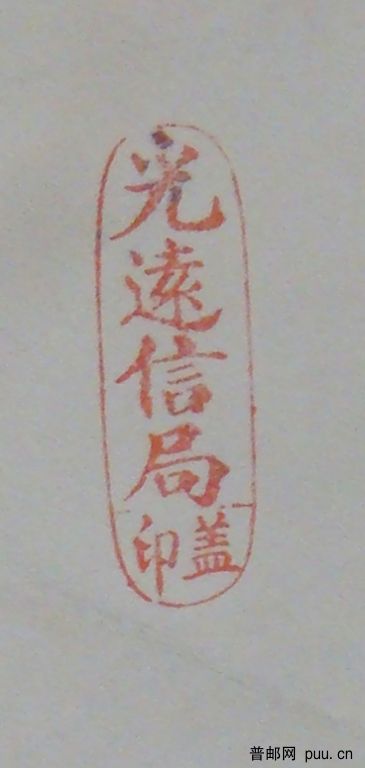 光遠信局
盖印
普邮网 puu.cn